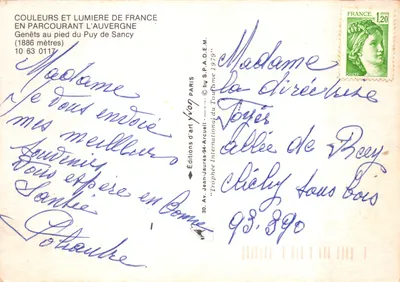 COULEURS ET LUMIERE DE FRANCE
EN PARCOURANT L'AUVERGNE
Genêts au pied du Puy de Sancy
(1886 mètres)
10 63 0117
Madame
Je vous envoie
mes meilleurs
souvenirs
Vous espère en bonne
Santé
Éditions d'art yvon PARIS
30, Av. Jean-Jaurès-94-Arcueil
"Trophée International du Tourisme 1979"
© by S.P.A.D.E.M.
1,20
Madame
la directrice
Foyer
allée de
Clichy sous bois
93.390